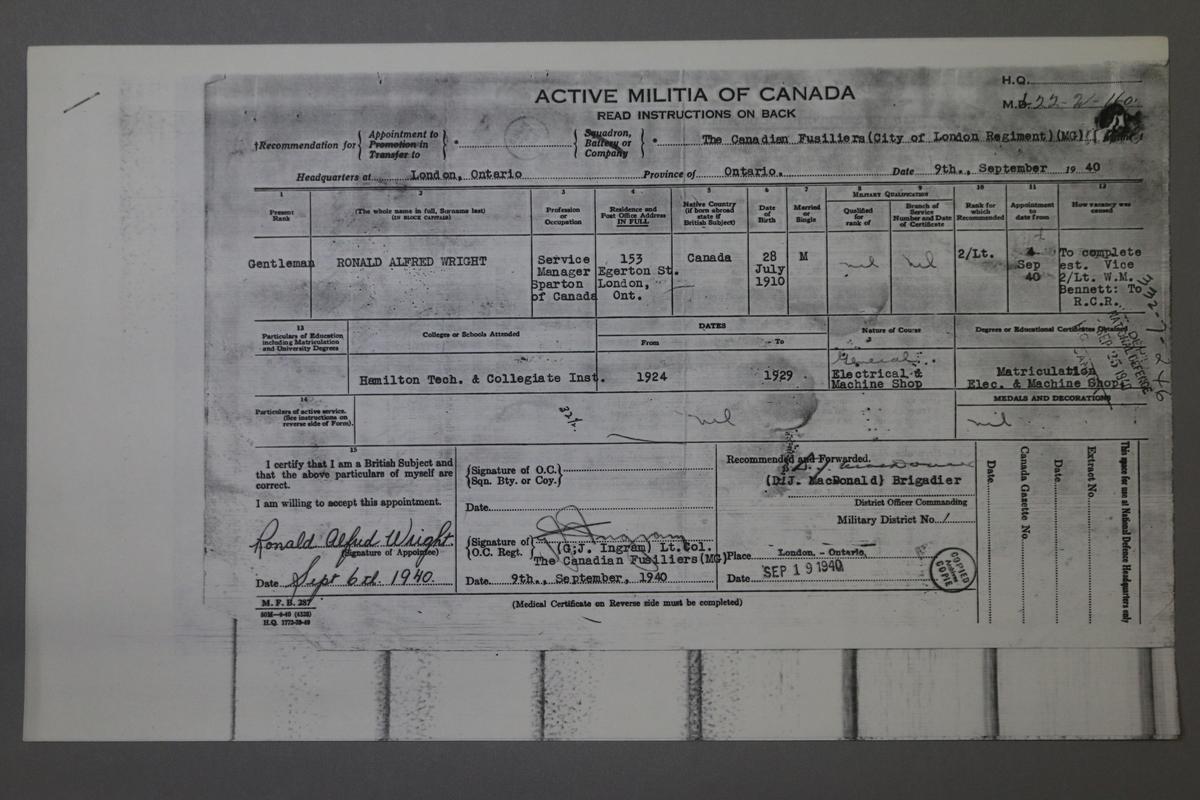 H.Q.
ACTIVE MILITIA OF CANADA
M.D. 
READ INSTRUCTIONS ON BACK
†Recommendation for { Appointment to Promotion in Transfer to } * { Squadron, Battery or Company } * The Canadian Fusiliers(City of London Regiment)(MG)
Headquarters at London, Ontario Province of Ontario. Date 9th., September 19 40
1 2 3 4 5 6 7 8 9 10 11 12
MILITARY QUALIFICATION
Present Rank
(The whole name in full, Surname last)
(IN BLOCK CAPITALS)
Profession or Occupation
Residence and Post Office Address IN FULL
Native Country (if born abroad state if British Subject)
Date of Birth
Married or Single
Qualified for rank of
Branch of Service Number and Date of Certificate
Rank for which Recommended
Appointment to date from
How vacancy was caused
Gentleman
RONALD ALFRED WRIGHT
Service
Manager
Sparton
of Canada
153
Egerton St.
London,
Ont.
Canada
28
July
1910
M
nil
nil
2/Lt.
Sep
40
To complete
est. Vice
2/Lt. W.M.
Bennett: To
R.C.R.
13
Particulars of Education
including Matriculation
and University Degrees
Colleges or Schools Attended
DATES
From To
Nature of Course
Degrees or Educational Certificates Obtained
Hamilton Tech. & Collegiate Inst. 1924 1929
General
Electrical &
Machine Shop
Matriculation
Elec. & Machine Shop.
14
Particulars of active service.
(See instructions on
reverse side of Form).
nil
MEDALS AND DECORATIONS
nil
15
I certify that I am a British Subject and
that the above particulars of myself are
correct.
I am willing to accept this appointment.
Ronald Alfred Wright
(Signature of Appointee)
Date Sept 6th. 1940.
{Signature of O.C.}
{Sqn. Bty. or Coy.}
Date
{Signature of
{O.C. Regt.
(G.J. Ingram) Lt.Col.
The Canadian Fusiliers(MG)
Date 9th., September, 1940
Recommended and Forwarded.
(D.J. MacDonald) Brigadier
District Officer Commanding
Military District No. 1
Place London, - Ontario,
Date SEP 19 1940
COPIED
COPIE
Date
Canada Gazette No.
Date
Extract No.
This space for use at National Defence Headquarters only
M. F. B. 287
H.Q. 1772-39-49
(Medical Certificate on Reverse side must be completed)